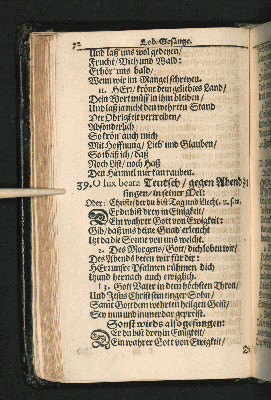 72 Lob-Gesänge.
Und laß uns wol gedeyen/
Frucht/ Vieh und Wald:
Erhör uns bald/
Wenn wir im Mangel schreyen.
11. HErr/ kröne dein geliebtes Land/
Dein Wort müß in ihm bleiben/
Und laß ja nicht den wehrten Stand
Der Obrigkeit vertreiben/
Absonderlich
So krön auch mich
Mit Hoffnung/ Lieb und Glauben/
So daß ich/ daß
Noch List/ noch Haß
Den Himmel mir kan rauben.
39. O lux beata Teutsch/ gegen Abend zu
singen/ in seiner Mel:
Oder: Christe/ der du bist Tag und Liecht. u. s. w.
DEr du bist drey in Einigkeit/
Ein wahrer Gott von Ewigkeit:
Gib/ daß uns deine Gnad erleucht
Itzt da die Sonne von uns weicht.
2. Des Morgens/ Gott/ dich loben wir/
Des Abends beten wir für dir:
HErr unsre Psalmen rühmen dich
Itzund hernach auch ewiglich.
3. Gott Vater in dem höchsten Thron/
Und Jesus Christ sein einger Sohn/
Samt Gott dem wehrten heilgen Geist/
Sey nun und immerdar gepreist.
Sonst wirds also gesungen:
DEr du bist drey in Einigkeit/
Ein wahrer Gott von Ewigkeit/